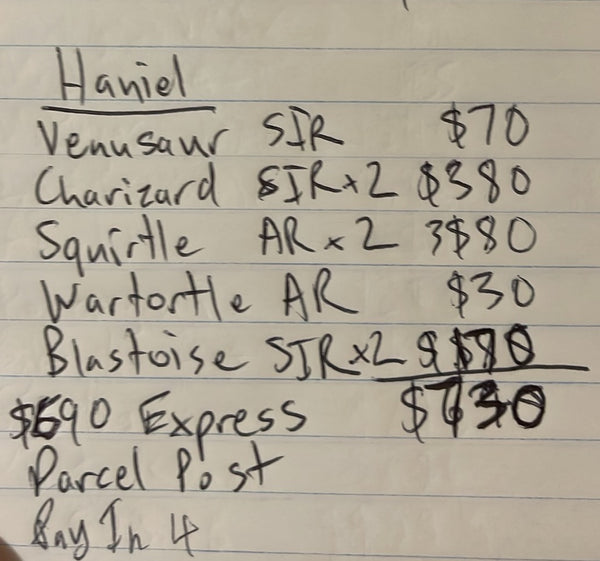 Haniel
Venusaur SIR $70
Charizard SIR x 2 $380
Squirtle AR x 2 $80
Wartortle AR $30
Blastoise SIR x2
$690 Express $730
Parcel Post
Pay In 4